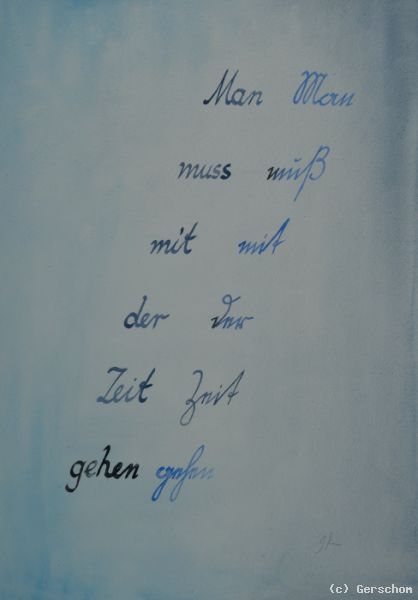 Man Man
muss muß
mit mit
der der
Zeit Zeit
gehen gehen
(c) Gerschom